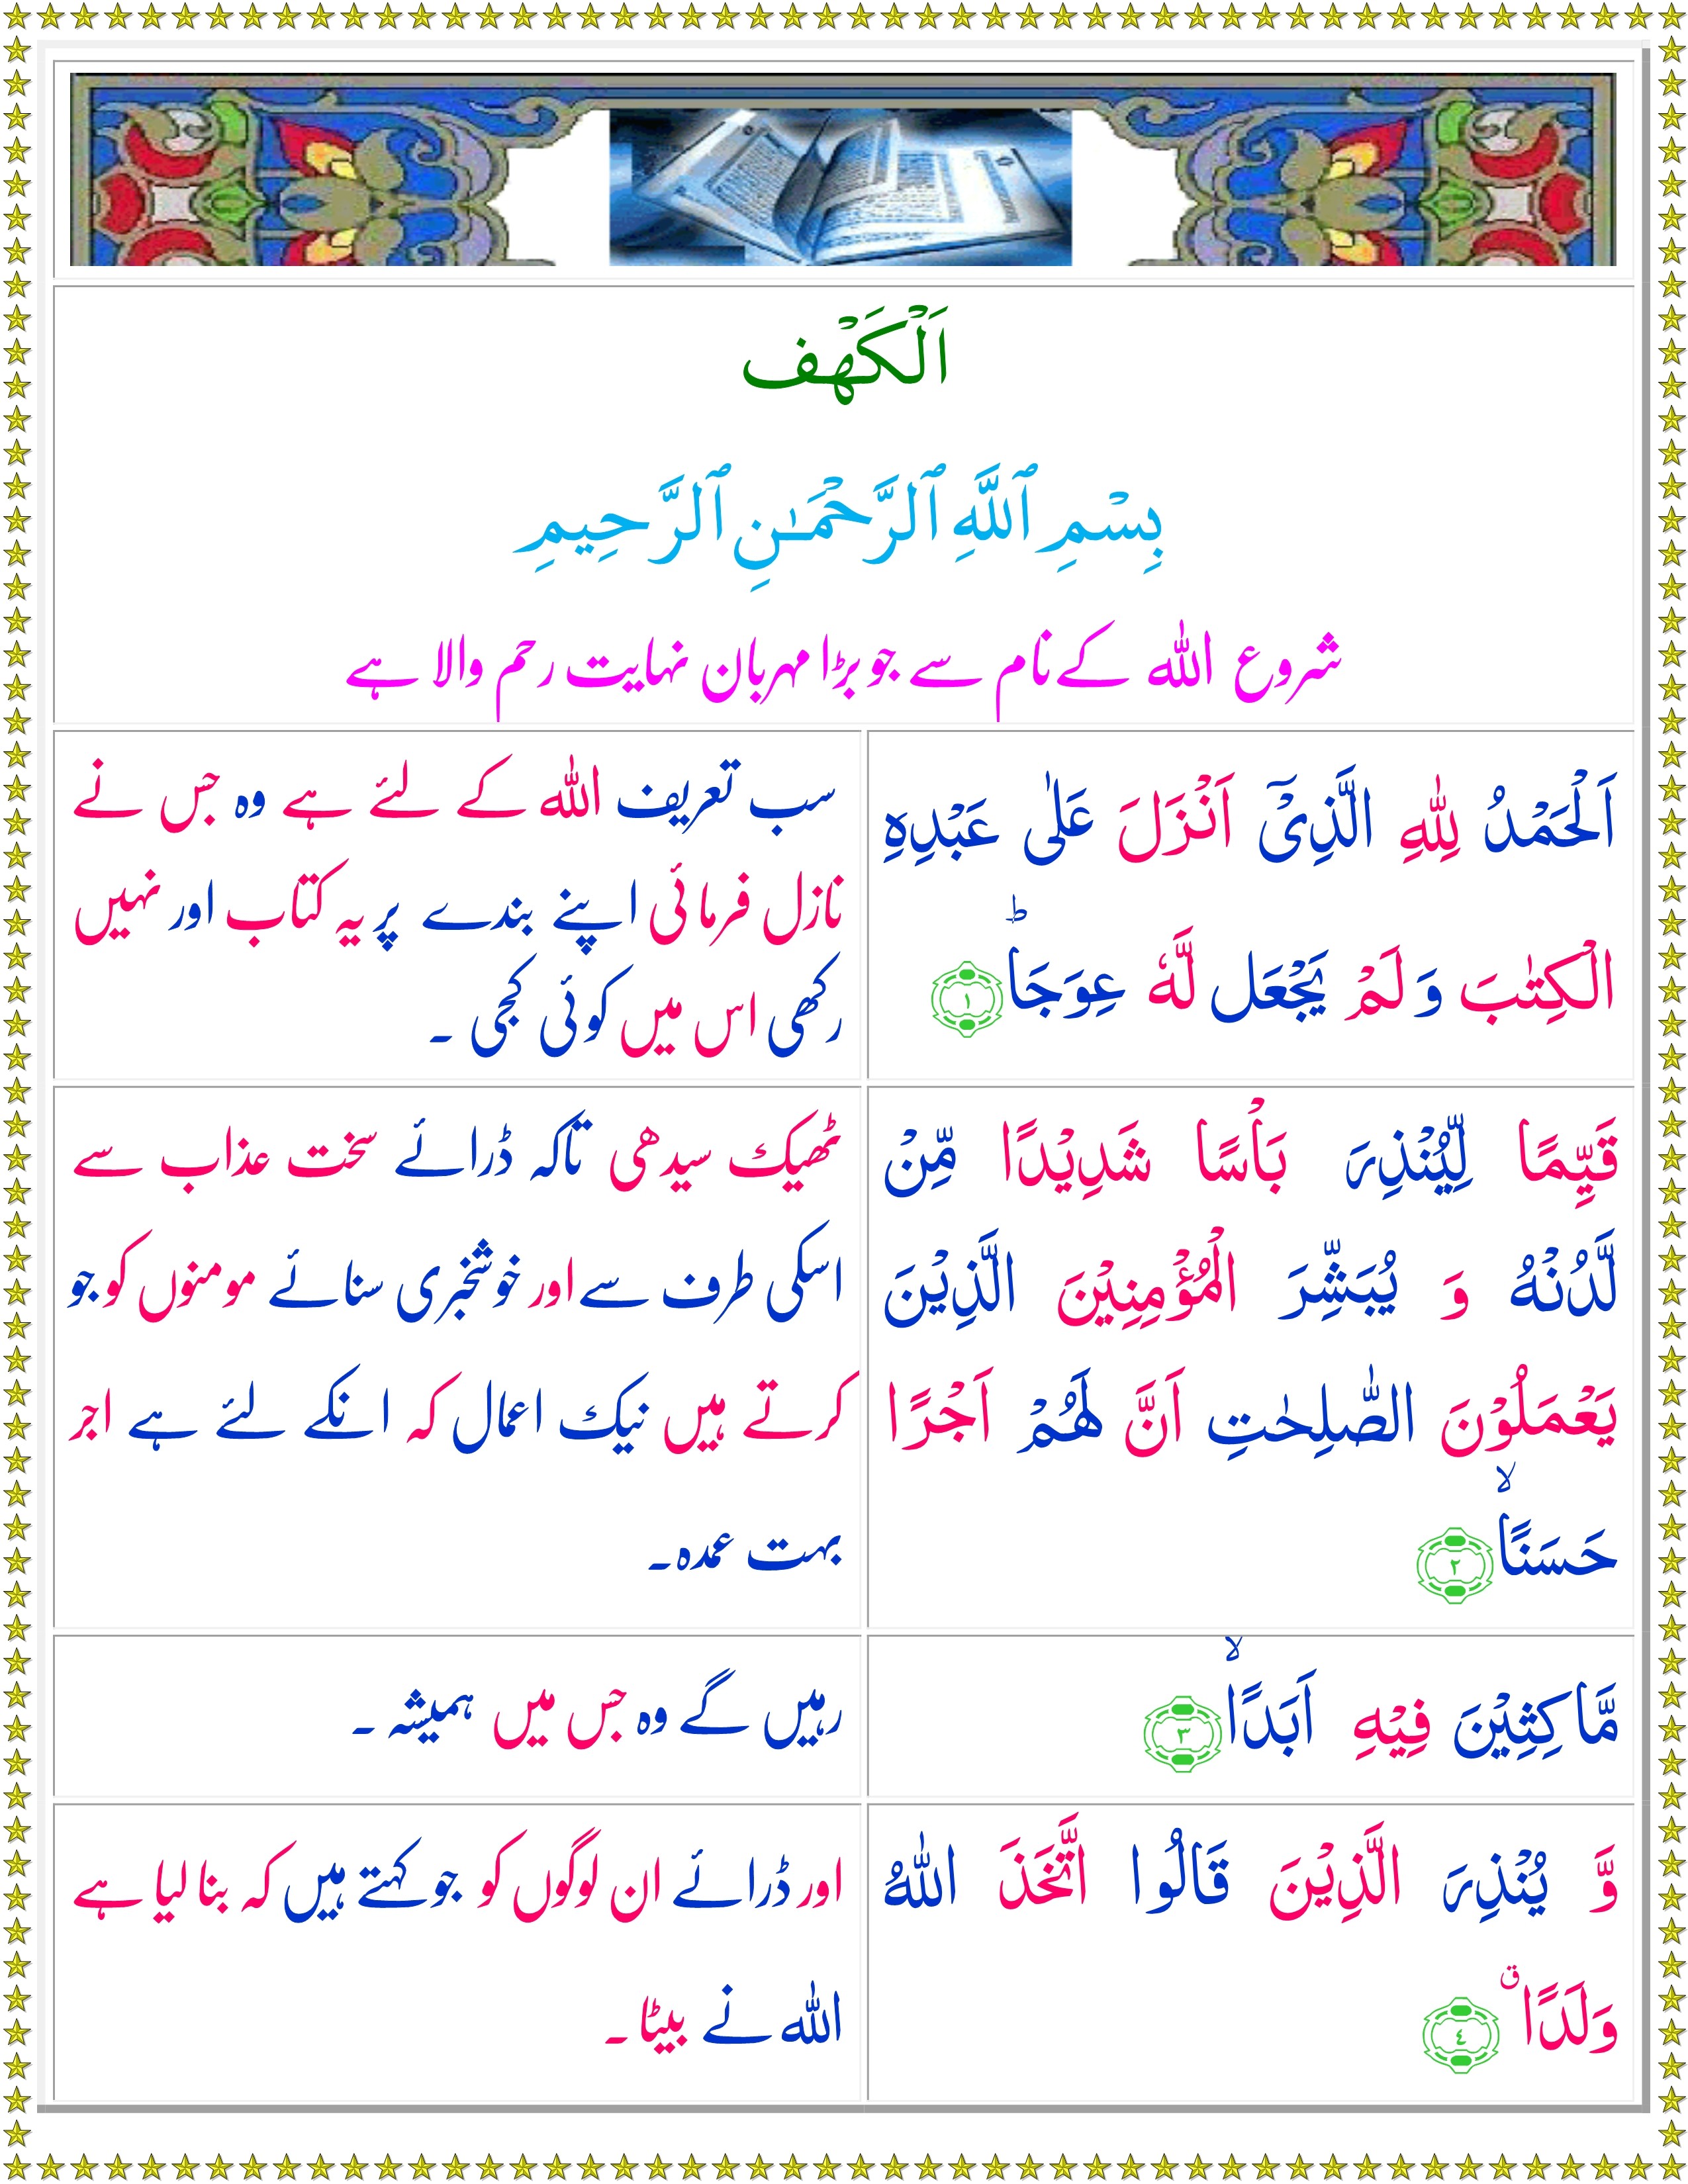 اَلْكَهْف
بِسْمِ ٱللَّهِ ٱلرَّحْمَـٰنِ ٱلرَّحِيمِ
شروع اللہ کے نام سے جو بڑا مہربان نہایت رحم والا ہے
اَلْحَمْدُ لِلّٰهِ الَّذِیْۤ اَنْزَلَ عَلٰی عَبْدِهِ
الْكِتٰبَ وَ لَمْ یَجْعَل لَّهٗ عِوَجَاؕ ۱
سب تعریف اللہ کے لئے ہے وہ جس نے
نازل فرمائی اپنے بندے پر یہ کتاب اور نہیں
رکھی اس میں کوئی کجی ۔
قَیِّمًا لِّیُنْذِرَ بَاْسًا شَدِیْدًا مِّنْ
لَّدُنْهُ وَ یُبَشِّرَ الْمُؤْمِنِیْنَ الَّذِیْنَ
یَعْمَلُوْنَ الصّٰلِحٰتِ اَنَّ لَهُمْ اَجْرًا
حَسَنًاۙ ۲
ٹھیک سیدھی تاکہ ڈرائے سخت عذاب سے
اسکی طرف سے اور خوشخبری سنائے مومنوں کو جو
کرتے ہیں نیک اعمال کہ انکے لئے ہے اجر
بہت عمدہ۔
مَّاكِثِیْنَ فِیْهِ اَبَدًاۙ ۳
رہیں گے وہ جس میں ہمیشہ ۔
وَّ یُنْذِرَ الَّذِیْنَ قَالُوا اتَّخَذَ اللّٰهُ
وَلَدًاۗق ٤
اور ڈرائے ان لوگوں کو جو کہتے ہیں کہ بنا لیا ہے
اللہ نے بیٹا ۔